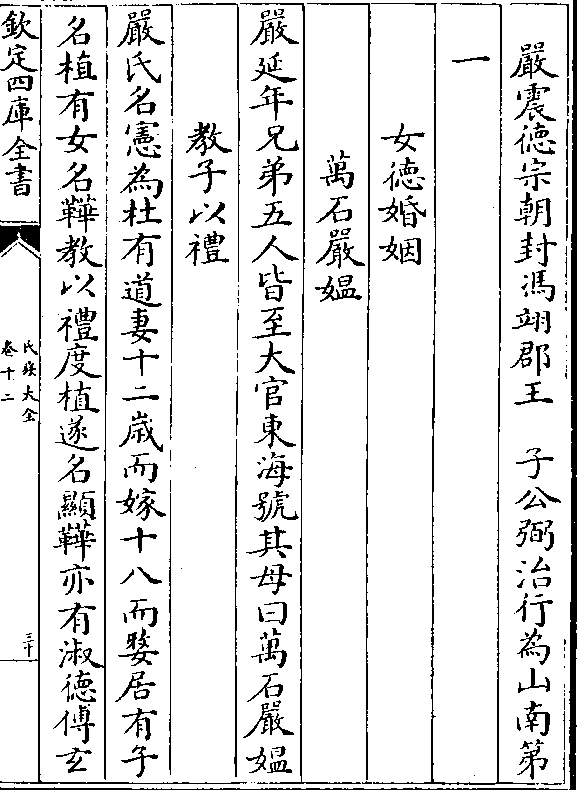 嚴震德宗朝封馮翊郡王　子公弼治行為山南第
一
女德婚姻
萬石嚴媪
嚴延年兄弟五人皆至大官東海號其母曰萬石嚴媪
教子以禮
嚴氏名憲為杜有道妻十二歳而嫁十八而嫠居有子
名植有女名韡教以禮度植遂名顯韡亦有淑德傅玄
欽定四庫全書
氏族大全
卷十二
三十